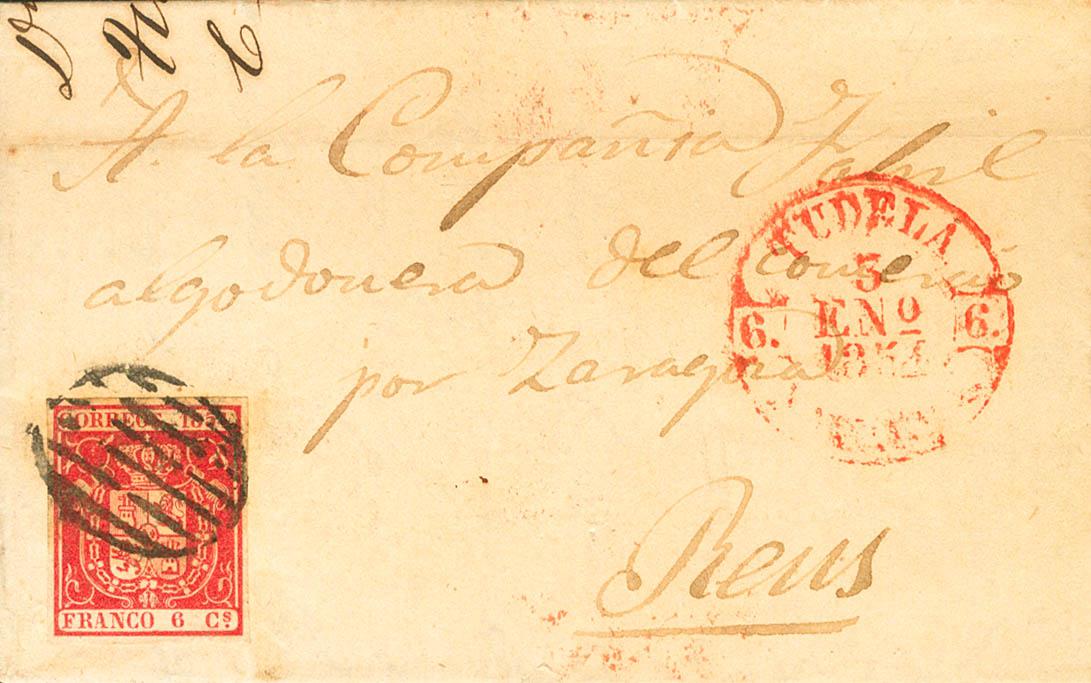 A. la Compañia Fabril
algodonera del comercio
por Zaragoza
Reus
TUDELA
6. 5 6.
ENº
1854
CORREOS 185
FRANCO 6 Cs.